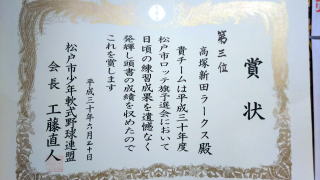 賞状
第三位
高塚新田ラークス殿
貴チームは平成三十年度
松戸市ロッテ旗予選会において
日頃の練習成果を遺憾なく
発揮し頭書の成績を収めたので
これを賞します
平成三十年六月三十日
松戸市少年軟式野球連盟
会長 工藤直人